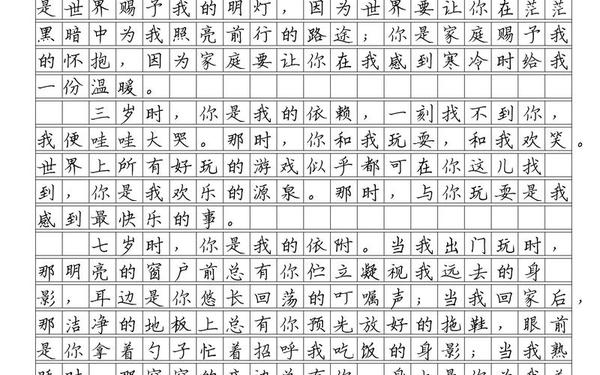 是世界赐予我的明灯，因为世界要让你在茫茫
黑暗中为我照亮前行的路途；你是家庭赐予我
的怀抱，因为家庭要让你在我感到寒冷时给我
一份温暖。
三岁时，你是我的依赖，一刻找不到你，
我便哇哇大哭。那时，你和我玩耍，和我欢笑。
世界上所有好玩的游戏似乎都可在你这儿找
到，你是我欢乐的源泉。那时，与你玩耍是我
感到最快乐的事。
七岁时，你是我的依附。当我出门玩时，
那明亮的窗户前总有你伫立凝视我远去的身
影，耳边是你悠长回荡的叮嘱声；当我回家后，
那洁净的地板上总有你预先放好的拖鞋，眼前
是你拿着勺子忙着招呼我吃饭的身影；当我熟